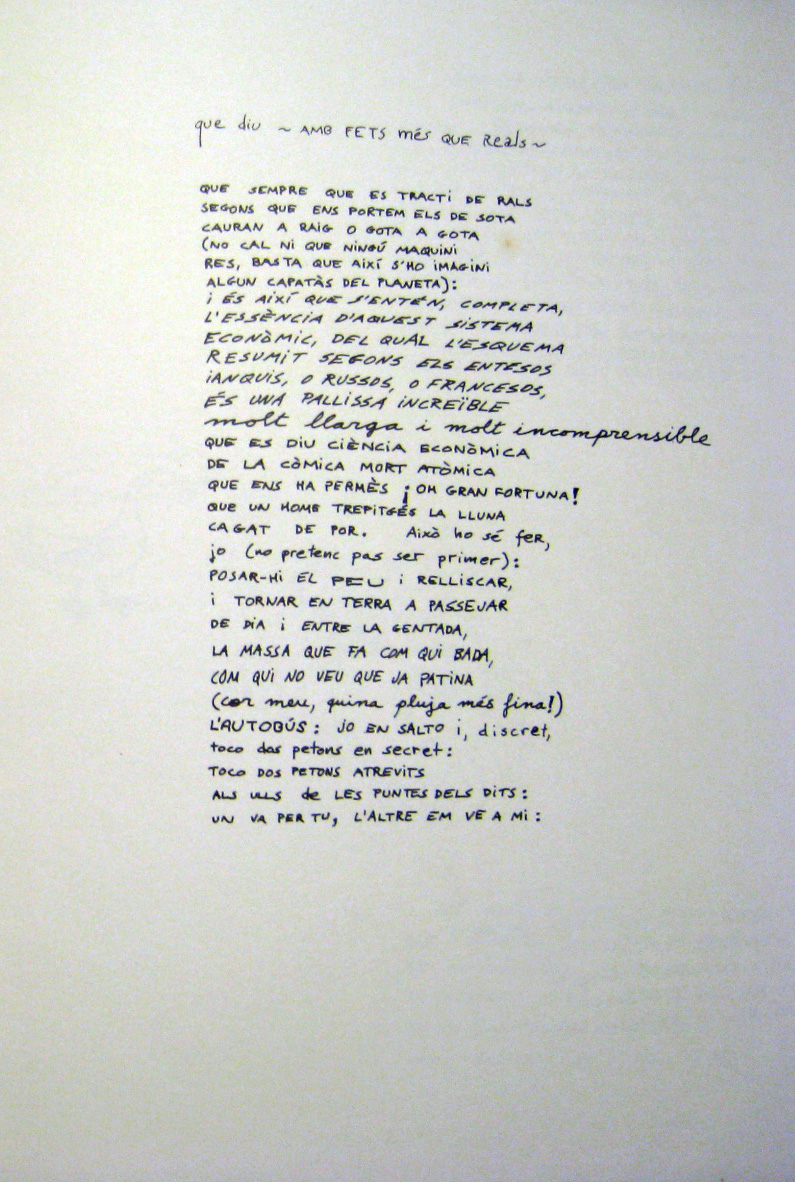 que diu ~ AMB FETS més QUE Reals ~
QUE SEMPRE QUE ES TRACTi DE RALS
SEGONS QUE ENS PORTEM ELS DE SOTA
CAURAN A RAIG O GOTA A GOTA
(NO CAL NI QUE NINGÚ MAQUINi
RES, BASTA QUE AiXÍ S'HO iMAGiNi
ALGUN CAPATÀS DEL PLANETA):
i ÉS AIXÍ QUE S'ENTÉN, COMPLETA,
L'ESSÈNCIA D'AQUEST SiSTEMA
ECONÒMIC, DEL QUAL L'ESQUEMA
RESUMIT SEGONS ELS ENTESOS
iANQUIS, O RUSSOS, O FRANCESOS,
ÉS UNA PALLISSA iNCREÏBLE
molt llarga i molt incomprensible
QUE ES DIU CIÈNCIA ECONÒMICA
DE LA CÒMICA MORT ATÒMICA
QUE ENS HA PERMÈS ¡OH GRAN FORTUNA!
QUE UN HOME TREPITGÉS LA LLUNA
CAGAT DE POR. Això ho sé feR,
jo (no pretenc pas ser primer):
POSAR-Hi EL PEU i RELLISCAR,
i TORNAR EN TERRA A PASSEJAR
DE DIA i ENTRE LA GENTADA,
LA MASSA QUE FA COM QUI BADA,
COM QUI NO VEU QUE JA PATINA
(cor meu, quina pluja més fina!)
L'AUTOBÚS: JO EN SALTO i, discret,
toco dos petons en secret:
TOCO DOS PETONS ATREVITS
ALS ULLS de LES PUNTES DELS DITS:
UN VA PER TU, L'ALTRE EM VE A Mi: